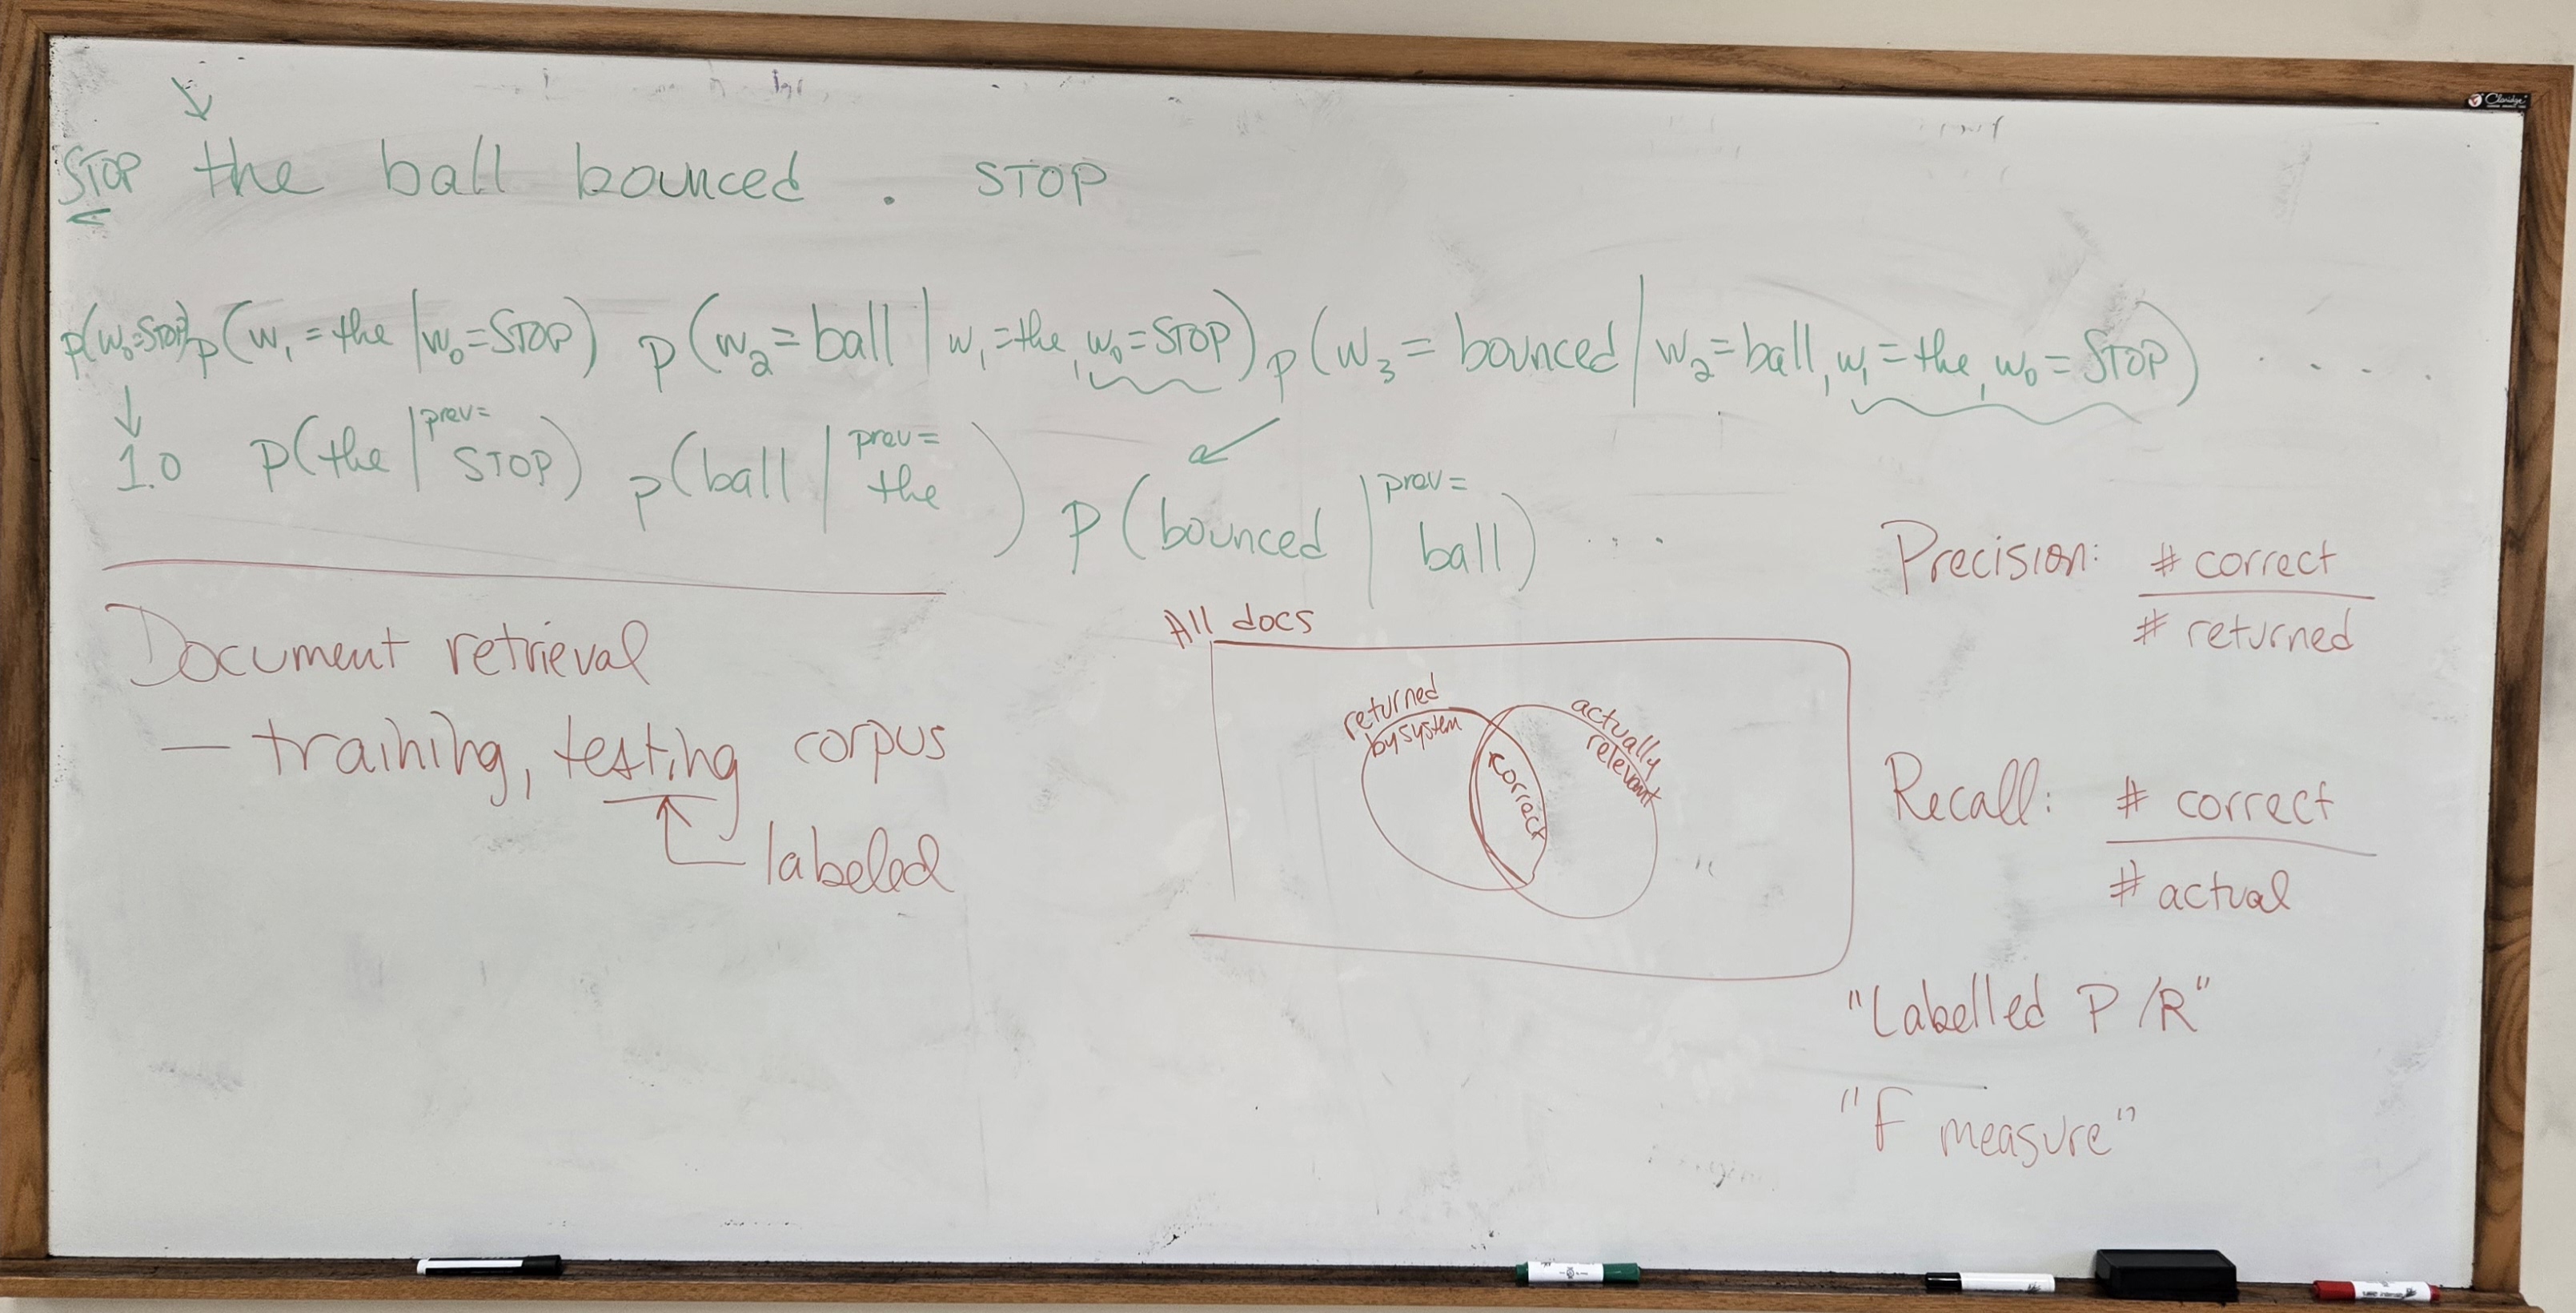 STOP the ball bounced . STOP
p(w₀=STOP) p(w₁=the|w₀=STOP) p(w₂=ball|w₁=the, w₀=STOP) p(w₃=bounced|w₂=ball, w₁=the, w₀=STOP) . . . .
1.0 p(the|prev=STOP) p(ball|prev=the) p(bounced|prev=ball) . . .
Document retrieval
— training, testing corpus
labeled
All docs
returned
by system
actually
relevant
correct
Precision: # correct
# returned
Recall: # correct
# actual
"Labelled P/R"
"F measure"
Claridge